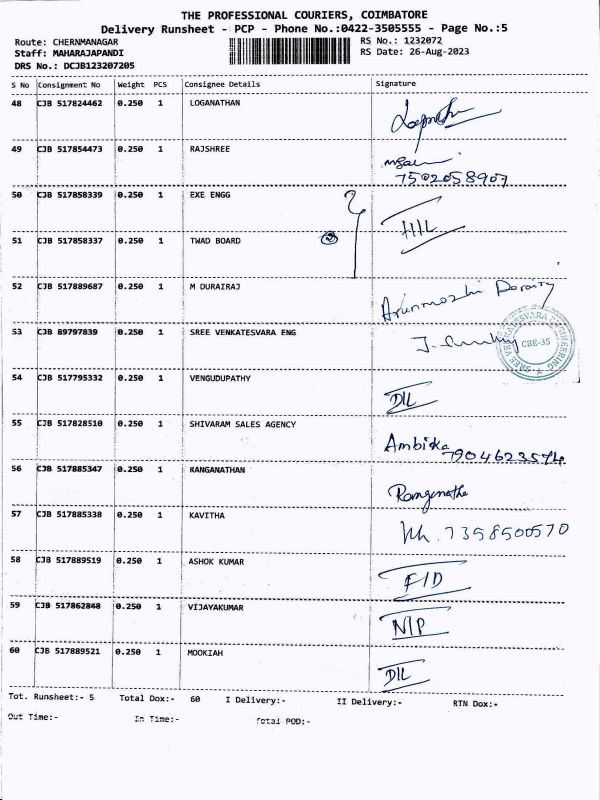 THE PROFESSIONAL COURIERS, COIMBATORE
Delivery Runsheet - PCP - Phone No.:0422-3505555 - Page No.:5
Route: CHERNMANAGAR RS No.: 1232072
Staff: MAHARAJAPANDI RS Date: 26-Aug-2023
DRS No.: DCJB123207205
S No Consignment No Weight PCS Consignee Details Signature
48 CJB 517824462 0.250 1 LOGANATHAN
49 CJB 517854473 0.250 1 RAJSHREE
7502058907
50 CJB 517858339 0.250 1 EXE ENGG
51 CJB 517858337 0.250 1 TWAD BOARD 2
52 CJB 517889687 0.250 1 M DURAIRAJ
53 CJB 89797839 0.250 1 SREE VENKATESVARA ENG
SREE VENKATESVARA ENGINEERING CBE-35
54 CJB 517795332 0.250 1 VENGUDUPATHY D/L
55 CJB 517828510 0.250 1 SHIVARAM SALES AGENCY Ambika
7904623574
56 CJB 517885347 0.250 1 RANGANATHAN
57 CJB 517885338 0.250 1 KAVITHA 7358500570
58 CJB 517889519 0.250 1 ASHOK KUMAR
59 CJB 517862848 0.250 1 VIJAYAKUMAR N/P
60 CJB 517889521 0.250 1 MOOKIAH D/L
Tot. Runsheet:- 5 Total Dox:- 60 I Delivery:- II Delivery:- RTN Dox:-
Out Time:- In Time:- Total POD:-